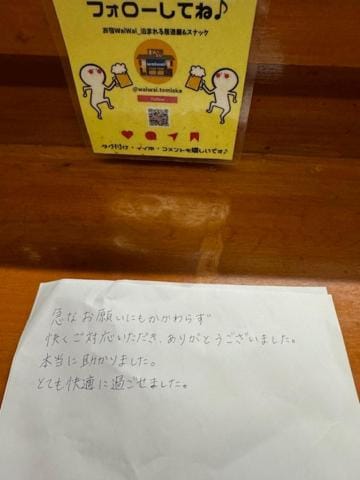 フォローしてね♪
民宿WaiWai_泊まれる居酒屋&スナック
waiwai
@waiwai.tomioka
Follow
タグ付け・イイネ・コメントも嬉しいです♪
急なお願いにもかかわらず
快くご対応いただき、ありがとうございました。
本当に助かりました。
とても快適に過ごせました。